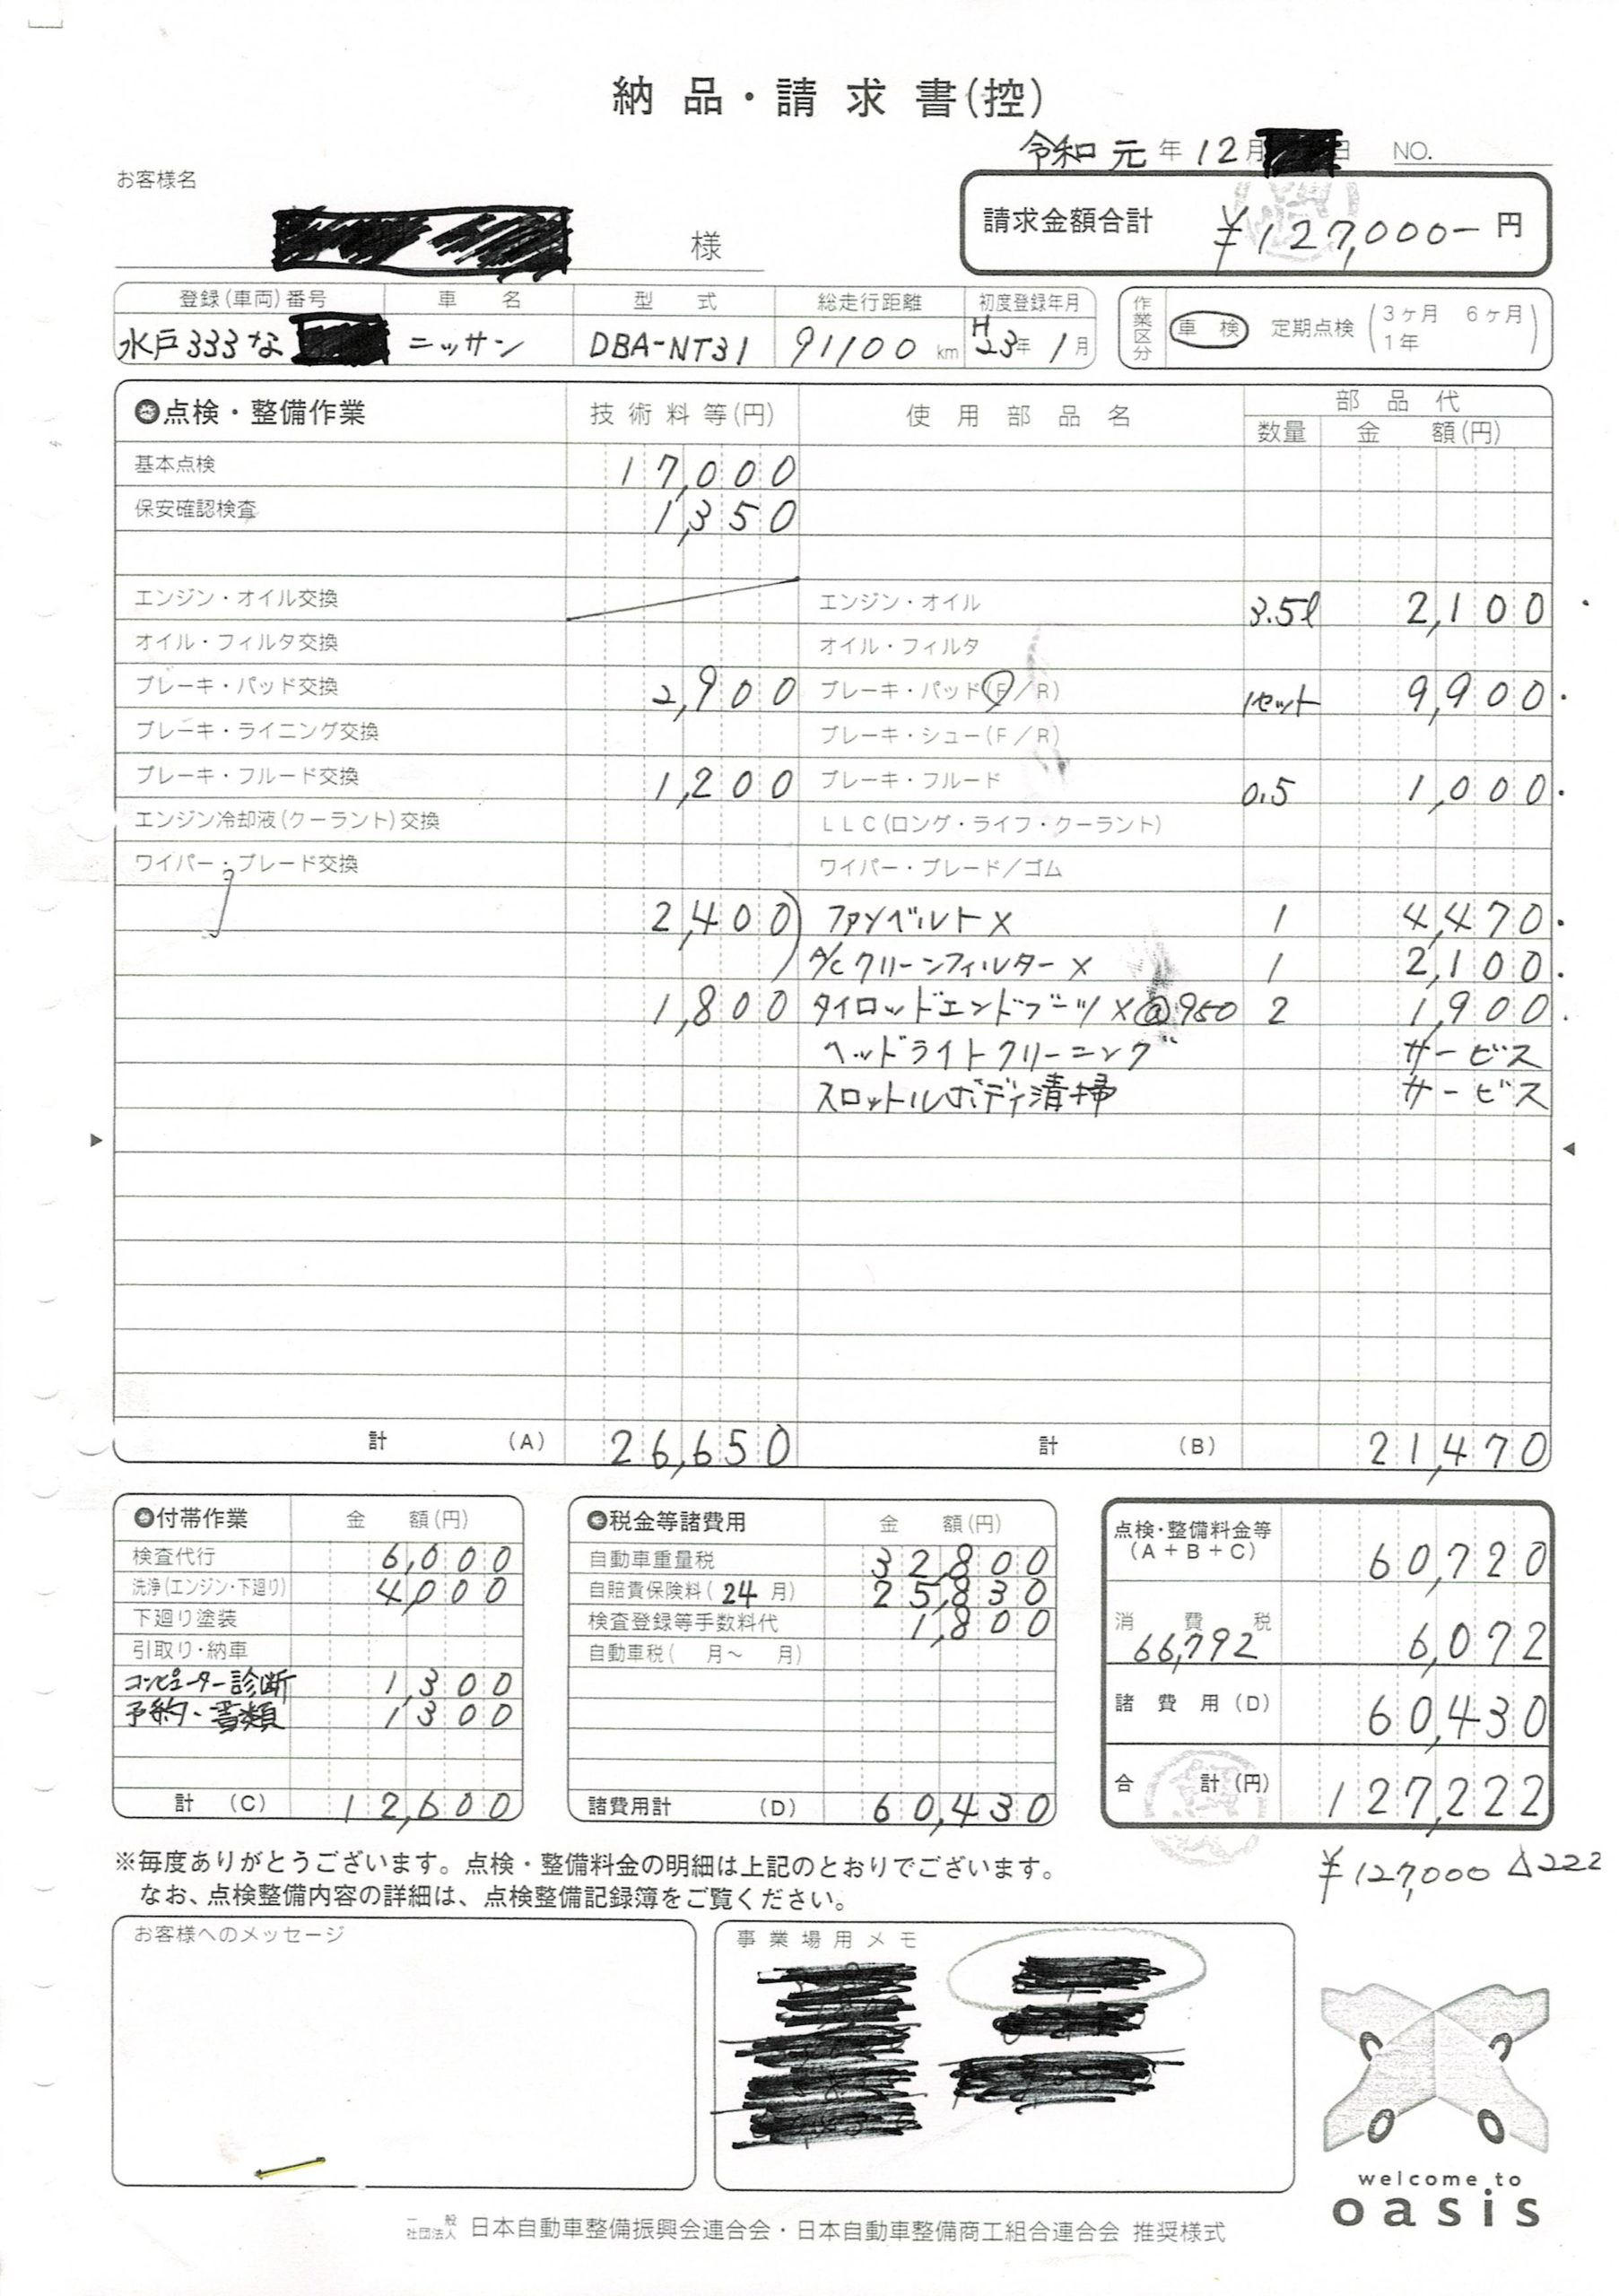 納品・請求書(控)
令和 元 年 12 月 日 NO.
お客様名
様
請求金額合計 ¥127,000- 円
登録(車両)番号 車名 型式 総走行距離 初度登録年月
水戸333な ニッサン DBA-NT31 91100 km H23年 1月
作業区分 車検 定期点検 (3ヶ月 6ヶ月 1年)
点検・整備作業 技術料等(円) 使用部品名 部品代
数量 金額(円)
基本点検 17,000
保安確認検査 1,350
エンジン・オイル交換 エンジン・オイル 3.5ℓ 2,100
オイル・フィルタ交換 オイル・フィルタ
ブレーキ・パッド交換 2,900 ブレーキ・パッド(F/R) 1セット 9,900
ブレーキ・ライニング交換 ブレーキ・シュー(F/R)
ブレーキ・フルード交換 1,200 ブレーキ・フルード 0.5 1,000
エンジン冷却液(クーラント)交換 LLC(ロング・ライフ・クーラント)
ワイパー・ブレード交換 ワイパー・ブレード/ゴム
2,400 ファンベルト× 1 4,470
A/Cクリーンフィルター× 1 2,100
1,800 タイロッドエンドブーツ×@950 2 1,900
ヘッドライトクリーニング サービス
スロットルボディ清掃 サービス
計 (A) 26,650 計 (B) 21,470
付帯作業 金額(円)
検査代行 6,000
洗浄(エンジン・下廻り) 4,000
下廻り塗装
引取り・納車
コンピューター診断 1,300
予約・書類 1,300
計 (C) 12,600
税金等諸費用 金額(円)
自動車重量税 32,800
自賠責保険料(24月) 25,830
検査登録等手数料代 1,800
自動車税( 月〜 月)
諸費用計 (D) 60,430
点検・整備料金等
(A+B+C) 60,720
消費税
66,792 6,072
諸費用(D) 60,430
合計(円) 127,222
¥127,000 △222
※毎度ありがとうございます。点検・整備料金の明細は上記のとおりでございます。
なお、点検整備内容の詳細は、点検整備記録簿をご覧ください。
お客様へのメッセージ
事業場用メモ
welcome to
oasis
一般社団法人 日本自動車整備振興会連合会・日本自動車整備商工組合連合会 推奨様式